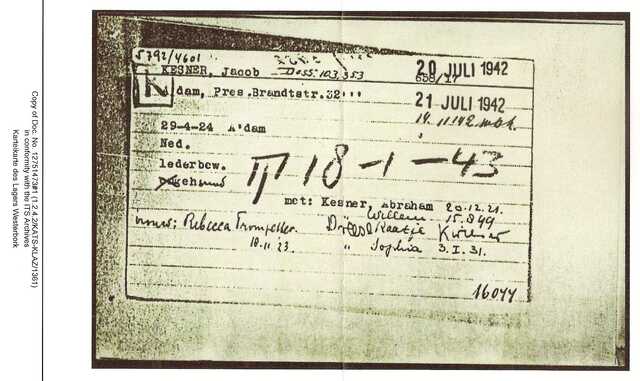 Copy of Doc. No. 12751473#1 (1.2.4.2/KATS-KLAZ/1361)
in conformity with the ITS Archives
Karteikarte des Lagers Westerbork
5792/4601
KESNER, Jacob Doss: 103,353
20 JULI 1942
K
A'dam, Pres.Brandtstr.32'''
21 JULI 1942
14.11.42
29-4-24 A'dam
Ned.
lederbew.
ongehuwd
18-1-43
met: Kesner, Abraham 20.12.21.
Willem. 15.8.99
vrouw: Rebecca Trompetter. Kaatje
10.11.23 " Sophia 3.I.31.
16044